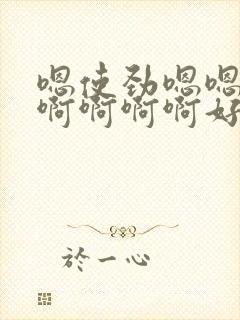 嗯使劲嗯嗯
啊啊啊啊好
於一心